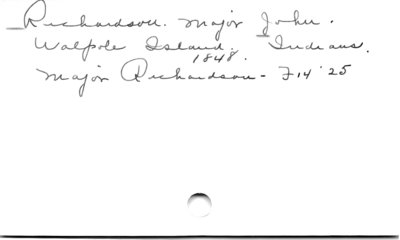 Richardson. Major John.
Walpole Island. Indians.
1848.
Major Richardson - F 14 '25